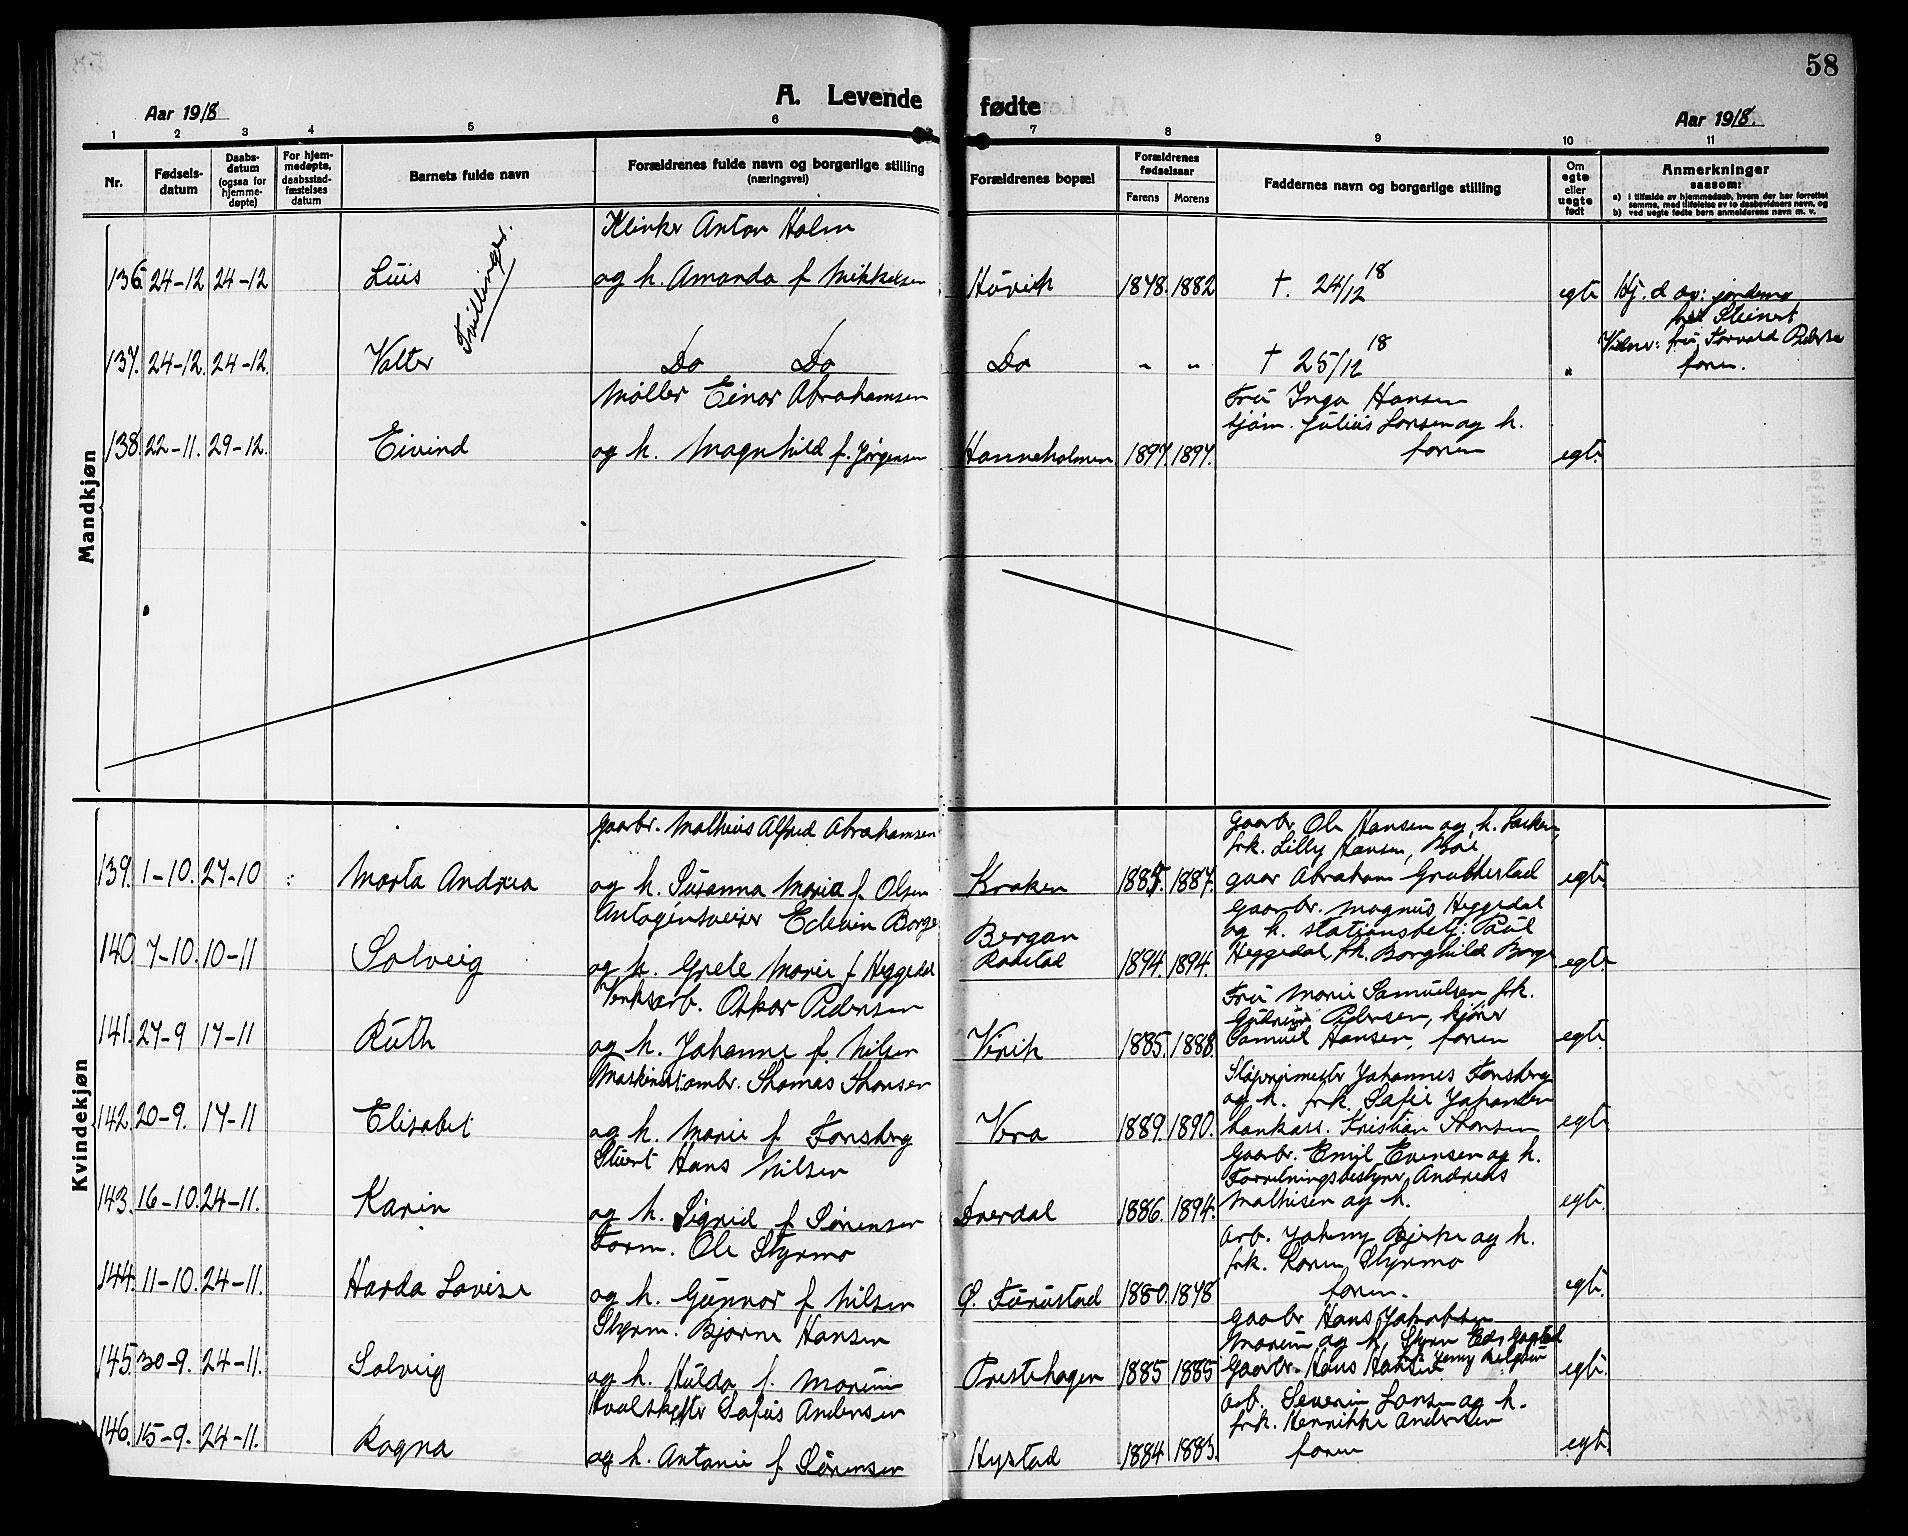 58
A. Levende fødte
Aar 1918
Aar 1918.
1 2 3 4 5 6 7 8 9 10 11
Nr.
Fødsels-datum
Daabs-datum (ogsaa for hjemme-døpte)
For hjem-medøpte, daabsstad-fæstelses datum
Barnets fulde navn
Forældrenes fulde navn og borgerlige stilling (næringsvei)
Forældrenes bopæl
Forældrenes fødselsaar
Farens Morens
Faddernes navn og borgerlige stilling
Om egte eller uegte født
Anmerkninger saasom:
a) i tilfælde av hjemmedaab, hvem der har forrettet samme, med tilføielse av to daabsvidners navn, og
b) ved uegte fødte barn anmelderens navn m. v.
Mandkjøn
Tvillinger.
Klinker Anton Holm
136 24-12 24-12 Luis og h. Amanda f Mikkelsen Høvik 1878. 1882 †. 24/12 18 egte Hj. d av: jordemor
Steinert
137. 24-12. 24-12. Valter Do Do Do " " † 25/12 18 " Vidne: fru Torvald Pedersen
faren.
Møller Einar Abrahamsen
Fru Inga Hansen
sjøm. Julius Larsen og h.
138. 22-11. 29-12. Eivind og h. Magnhild f. Jørgensen Hanneholmen 1897. 1897. faren egte.
Kvindekjøn
Gaarbr. Matheus Alfred Abrahamsen
Gaarbr. Ole Hansen og h.
frk. Lilly Hansen,
139. 1-10. 27-10 Marta Andrea og h. Susanna Maria f. Olsen Kraken 1885. 1887. gaar Abraham Grubbestad egte.
Edevin Borge
Gaarbr. Magnus Heggedal
Bergan
og h. stationsbetj: Paul
140. 7-10. 10-11 Solveig og h. Grete Marie f Heggedal 1894. 1894. Heggedal, frk. Borghild Borge egte.
Verksarb. Oskar Pedersen
Fru Marie Samuelsen frk.
Pedersen, kjører
141. 27-9 17-11 Ruth og h. Johanne f Nilsen Virik 1885. 1888. Samuel Hansen, faren egte.
Thomas Thorsen
Johannes Tønsberg
og h. frk. Sofie Johansen
142. 20-9. 17-11 Elisabet og h. Marie f Tønsberg Vera 1889. 1890. Kristian Thorsen egte.
Stuert Hans Nilsen
Gaarbr. Emil Evensen og h.
Forretningsbestyrer Andreas
143. 16-10. 24-11. Karin og h. Sigrid f Sørensen 1886. 1894. Mathisen og h. egte.
Form. Ole Styrmo
Arb. Johny Bjerke og h.
frk. Karen Styrmo
144. 11-10. 24-11. Harda Lovise og h. Gunnor f Nilsen Ø. Furustad 1880. 1878 faren. egte.
Styrm. Bjarne Hansen
Gaarbr Hans Jakobsen
145. 30-9. 24-11. Solveig og h. Hulda f. Prestehagen 1885 1885 Gaarbr. Hans egte.
Hvalskytter Sofus Andersen
Arb. Severin Larsen og h.
frk. Henrikke Andersen
146. 15-9. 24-11. Ragna og h. Antonie f Sørensen Hystad 1884. 1883. faren egte.